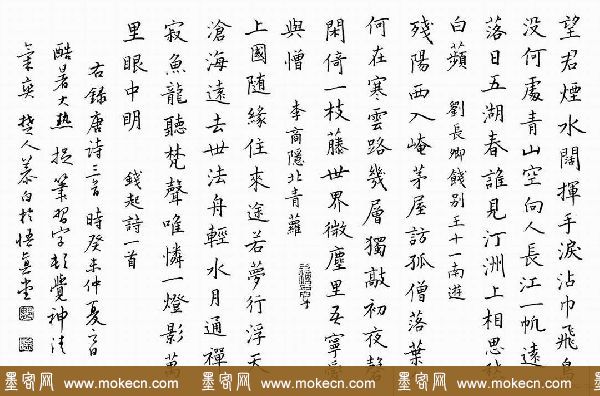 望君煙水闊揮手淚沾巾飛鳥
没何處青山空向人長江一帆遠
落日五湖春誰見汀洲上相思愁
白蘋 劉長卿餞別王十一南遊
殘陽西入崦茅屋訪孤僧落葉
何在寒雲路幾層獨敲初夜磬
閑倚一枝藤世界微塵里吾寧愛
與憎 李商隱北青蘿
上國随緣住來途若夢行浮天
滄海遠去世法舟輕水月通禪
寂魚龍聽梵聲唯憐一燈影萬
里眼中明 錢起詩一首
右錄唐詩三首時癸未仲夏
酷暑大熱捉筆習字頓覺神清
氣爽 楚人慕白於悟真堂
墨客网 www.mokecn.com 墨客网 www.mokecn.com 墨客网 www.mokecn.com